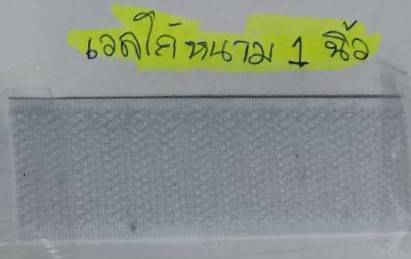 เวลโก้หนาม 1 นิ้ว